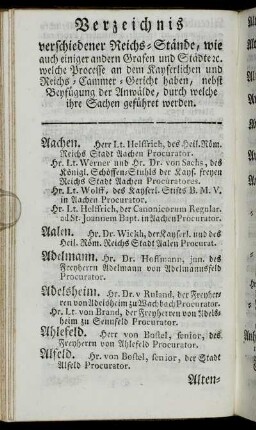 Verzeichnis
verschiedener Reichs-Stände, wie
auch einiger andern Grafen und Städte ꝛc.
welche Processe an dem Kayserlichen und
Reichs-Cammer-Gericht haben, nebst
Beyfügung der Anwälde, durch welche
ihre Sachen geführet werden.
Aachen. Herr Lt. Helffrich, des Heil. Röm.
Reichs Stadt Aachen Procurator.
Hr. Lt. Werner und Hr. Dr. von Sachs, des
Königl. Schöffen-Stuhls der Kays. freyen
Reichs Stadt Aachen Procuratores.
Hr. Lt. Wolff, des Kayserl. Stifts B. M. V.
in Aachen Procurator.
Hr. Lt. Helffrich, der Canonicorum Regular.
ad St. Joannem Bapt. in Aachen Procurator.
Aalen. Hr. Dr. Wickh, der Kayserl. und des
Heil. Röm. Reichs Stadt Aalen Procurat.
Adelmann. Hr. Dr. Hoffmann, jun. des
Freyherrn Adelmann von Adelmannsfeld
Procurator.
Adelsheim. Hr. Dr. v Ruland, der Freyher-
ren von Adelsheim zu Wachbach Procurator.
Hr. Lt. von Brand, der Freyherren von Adels-
heim zu Sennfeld Procurator.
Ahlefeld. Herr von Bostel, senior, des
Freyherrn von Ahlefeld Procurator.
Alsfeld. Hr. von Bostel, senior, der Stadt
Alsfeld Procurator.
Alten-